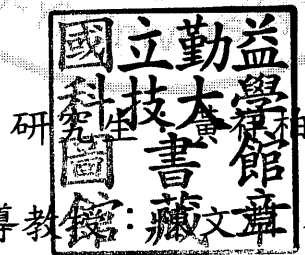 國立勤益
科技大學
圖書館
藏章
研究生：黃 柏
導教授： 文